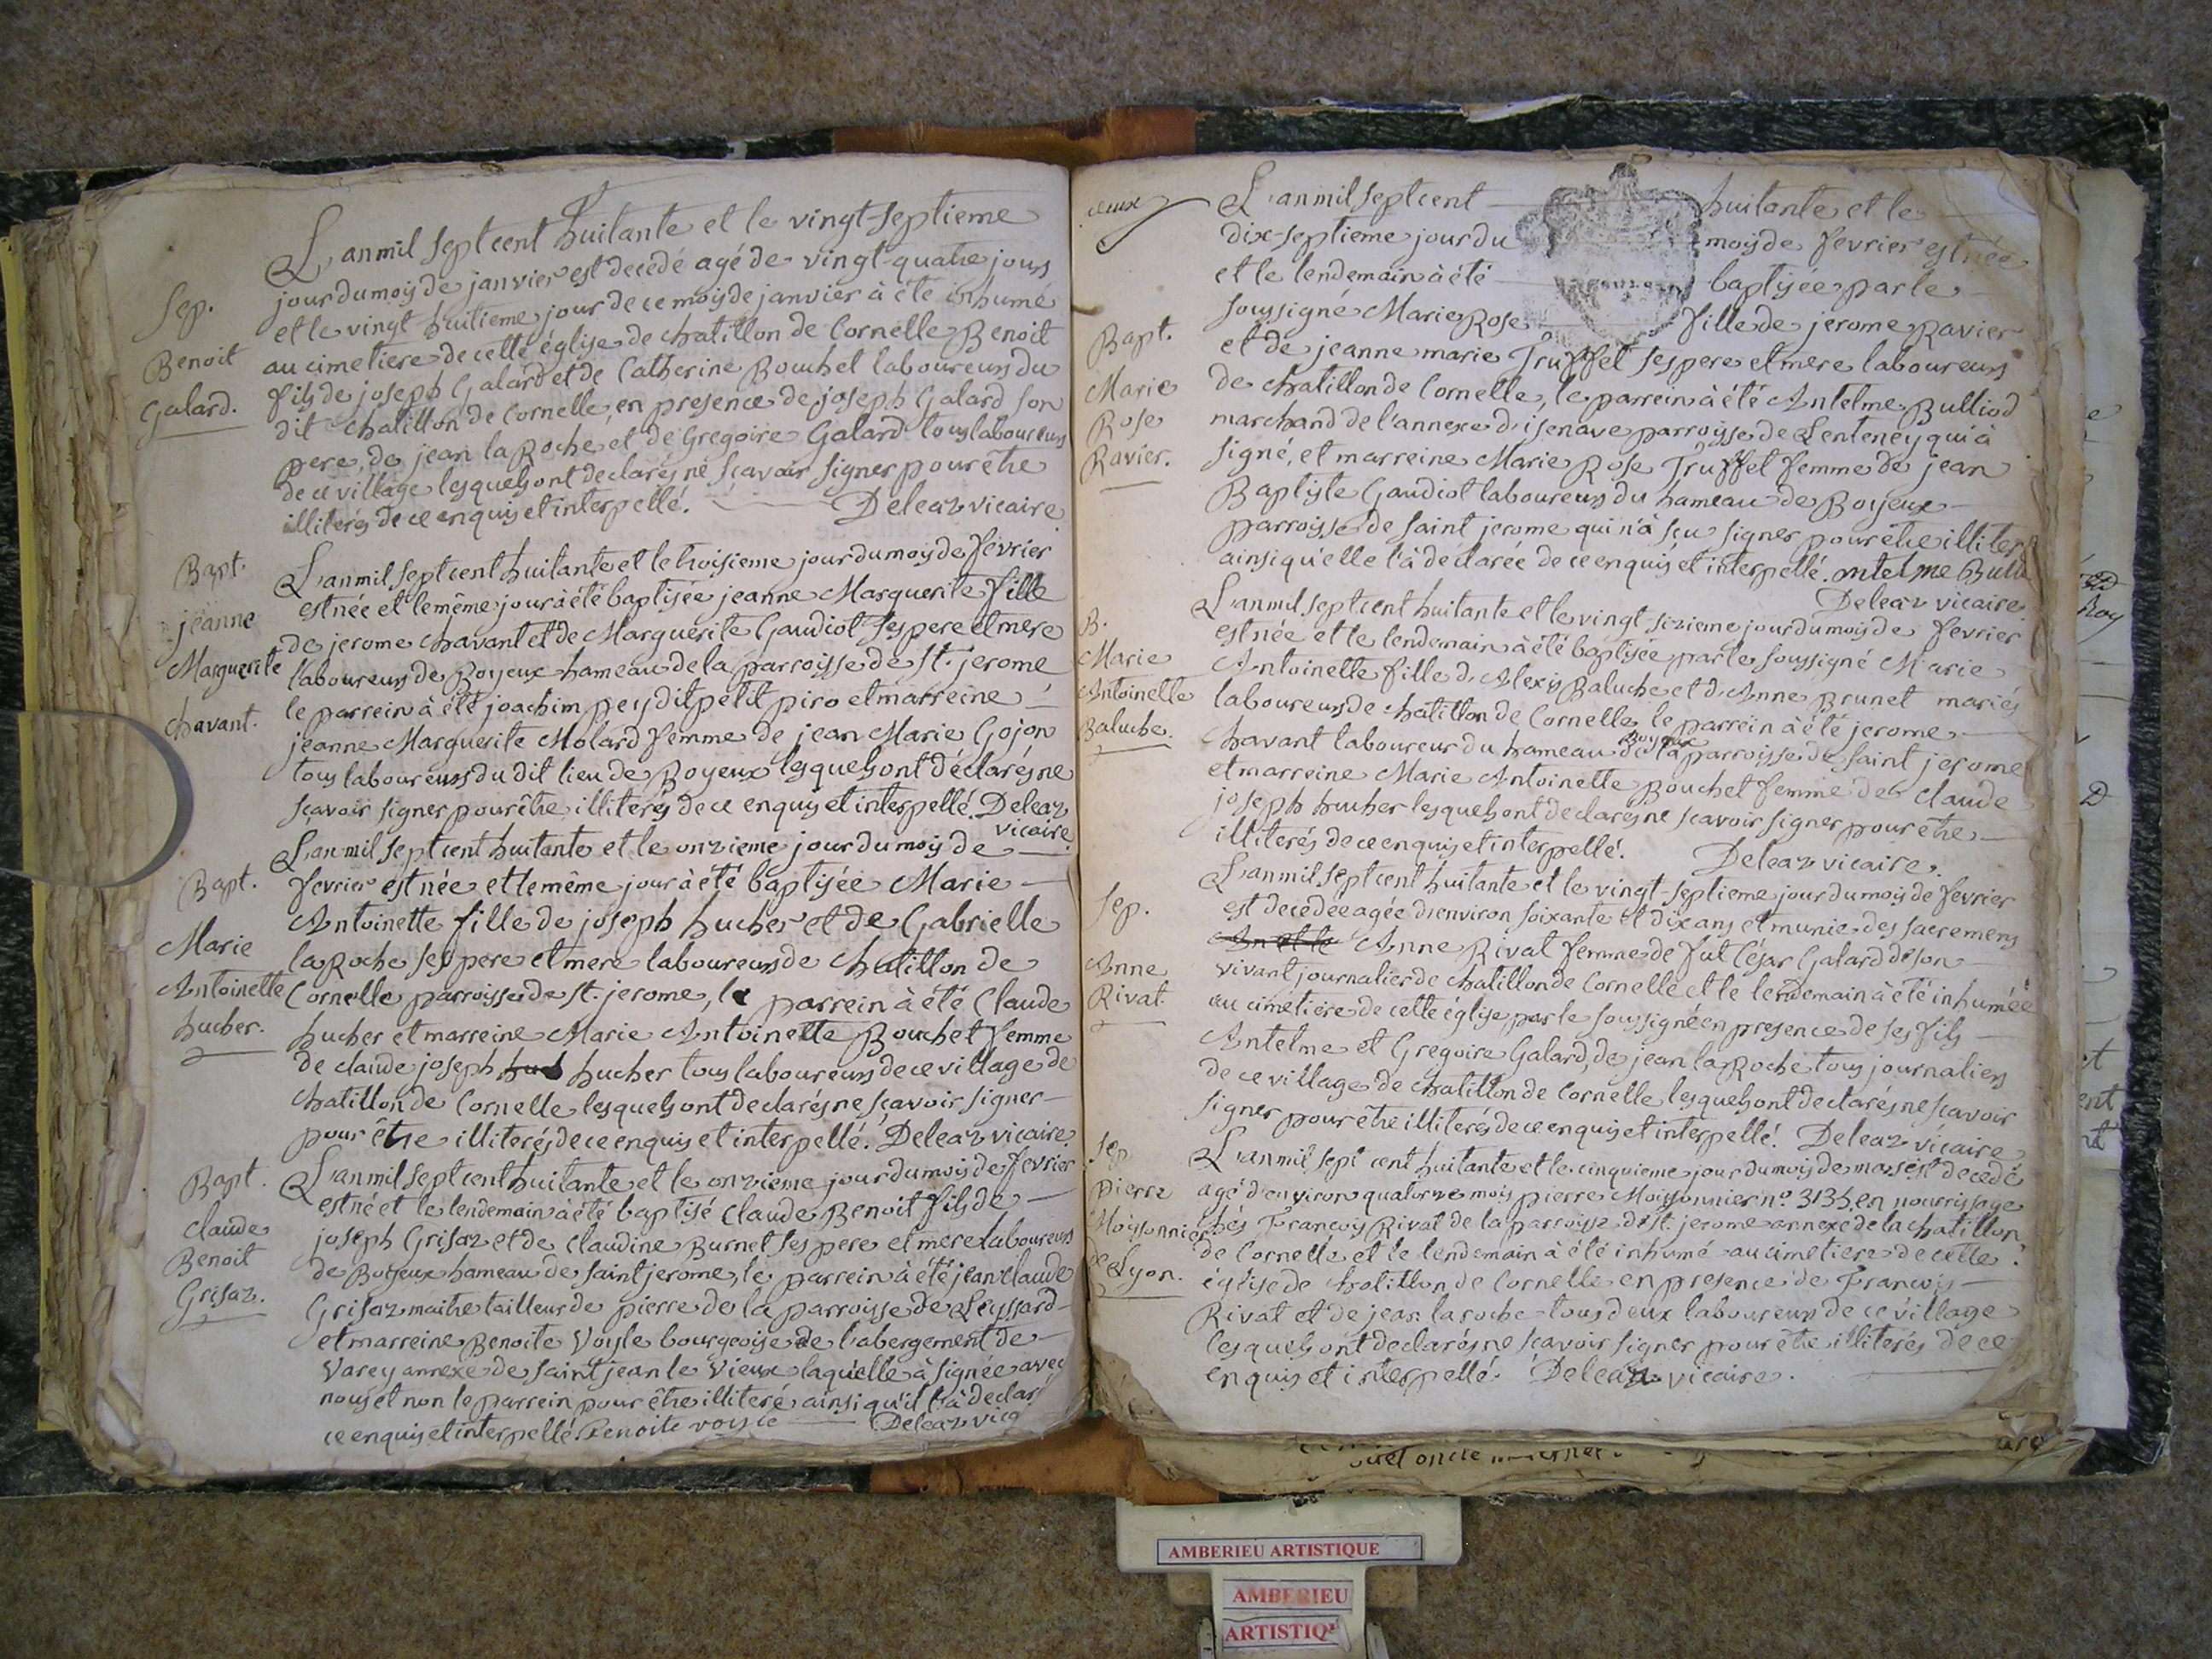 Sep.
Benoit
Galard.
L'an mil sept cent huitante et le vingt-septieme
jour du moys de janvier est decedé agé de vingt-quatre jours
et le vingt-huitieme jour de ce moys de janvier à été inhumé
au cimetiere de cette église de chatillon de Cornelle Benoit
fils de joseph Galard et de Catherine Bouchet laboureurs du
dit chatillon de Cornelle, en presence de joseph Galard son
pere, de jean la Roche et de Gregoire Galard tous laboureurs
de ce village lesquels ont declarés ne sçavoir signer pour être
illiterés de ce enquis et interpellé. Deleaz vicaire
Bapt.
jeanne
Marguerite
Chavant.
L'an mil sept cent huitante et le troisieme jour du moys de fevrier
est née et le même jour à été baptisée jeanne Marguerite fille
de jerome Chavant et de Marguerite Gaudiot ses pere et mere
laboureurs de Boyeux hameau de la parroisse de St. jerome
le parrein à été joachim pey dit petit piro et marreine
jeanne Marguerite Molard femme de jean Marie Gojon
tous laboureurs du dit lieu de Boyeux lesquels ont déclarés ne
sçavoir signer pour être illiterés de ce enquis et interpellé. Deleaz
vicaire.
Bapt.
Marie
Antoinette
hucher.
L'an mil sept cent huitante et le onzieme jour du moys de
fevrier est née et le même jour à été baptisée Marie
Antoinette fille de joseph hucher et de Gabrielle
la Roche ses pere et mere laboureurs de Chatillon de
Cornelle parroisse de St. jerome, le parrein à été Claude
hucher et marreine Marie Antoinette Bouchet femme
de claude joseph hucher tous laboureurs de ce village de
Chatillon de Cornelle lesquels ont declarés ne sçavoir signer
pour être illiterés de ce enquis et interpellé. Deleaz vicaire.
Bapt.
Claude
Benoit
Grisaz.
L'an mil sept cent huitante et le onzieme jour du moys de fevrier
est né et le lendemain à été baptisé Claude Benoit fils de
joseph Grisaz et de Claudine Burnet ses pere et mere laboureurs
de Boyeux hameau de saint jerome, le parrein à été jean claude
Grisaz maitre tailleur de pierre de la parroisse de Leyssard
et marreine Benoite Voisle bourgeoise de l'abergement de
Varey annexe de saint jean le Vieux laquelle à signée avec
nous et non le parrein pour être illiteré ainsi qu'il l'à declaré
ce enquis et interpellé. Benoite voisle Deleaz vica
deux
Bapt.
Marie
Rose
Ravier.
L'an mil sept cent huitante et le
dix-septieme jour du moys de fevrier est née
et le lendemain à été baptisée par le
soussigné Marie Rose fille de jerome Ravier
et de jeanne marie Truffet ses pere et mere laboureurs
de chatillon de Cornelle, le parrein à été Antelme Bulliod
marchand de l'annexe d'isenave parroisse de Lenteney qui à
signé, et marreine Marie Rose Truffet femme de jean
Baptiste Gaudiot laboureurs du hameau de Boyeux
parroisse de saint jerome qui n'à sçu signer pour être illiter
ainsi qu'elle l'à declarée de ce enquis et interpellé. Antelme Bulli
Deleaz vicaire
B.
Marie
Antoinette
Baluche.
L'an mil sept cent huitante et le vingt-sizieme jour du moys de fevrier
est née et le lendemain à été baptisée par le soussigné Marie
Antoinette fille d'Alexis Baluche et d'Anne Brunet mariés
laboureurs de chatillon de Cornelle, le parrein à été jerome
Chavant laboureur du hameau de Boyeux la parroisse de saint jerome
et marreine Marie Antoinette Bouchet femme de claude
joseph hucher lesquels ont declarés ne sçavoir signer pour être
illiterés de ce enquis et interpellé. Deleaz vicaire.
Sep.
Anne
Rivat.
L'an mil sept cent huitante et le vingt-septieme jour du moys de fevrier
est decedée agée d'environ soixante et dix ans et munie des sacremens
An et le Anne Rivat femme de fut César Galard de son
vivant journalier de chatillon de Cornelle et le lendemain à été inhumée
au cimetiere de cette église par le soussigné en presence de ses fils
Antelme et Gregoire Galard, de jean la Roche tous journaliers
de ce village de chatillon de Cornelle lesquels ont declarés ne sçavoir
signer pour être illiterés de ce enquis et interpellé. Deleaz vicaire
Sep.
Pierre
Moissonnier
de Lyon.
L'an mil sept cent huitante et le cinquieme jour du moys de mars est decedé
agé d'environ quatorze mois pierre Moissonnier no. 3135 en nourrissage
chés François Rivat de la parroisse de St. jerome annexe de la chatillon
de Cornelle et le lendemain à été inhumé au cimetiere de cette
église de chatillon de Cornelle en presence de François
Rivat et de jean la roche tous deux laboureurs de ce village
lesquels ont declarés ne sçavoir signer pour être illiterés de ce
enquis et interpellé. Deleaz vicaire.
AMBERIEU ARTISTIQUE
AMBERIEU
ARTISTIQ